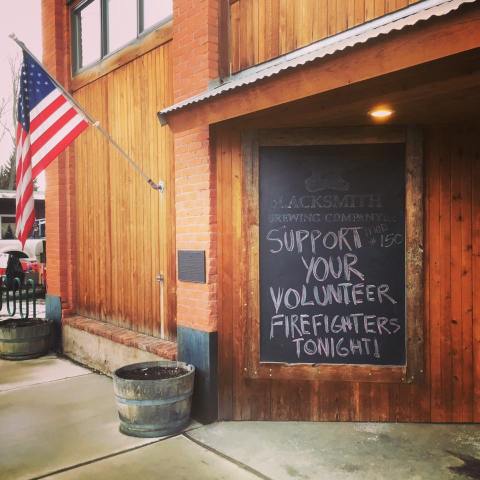 BLACKSMITH
BREWING COMPANY
SUPPORT
YOUR
VOLUNTEER
FIREFIGHTERS
TONIGHT!